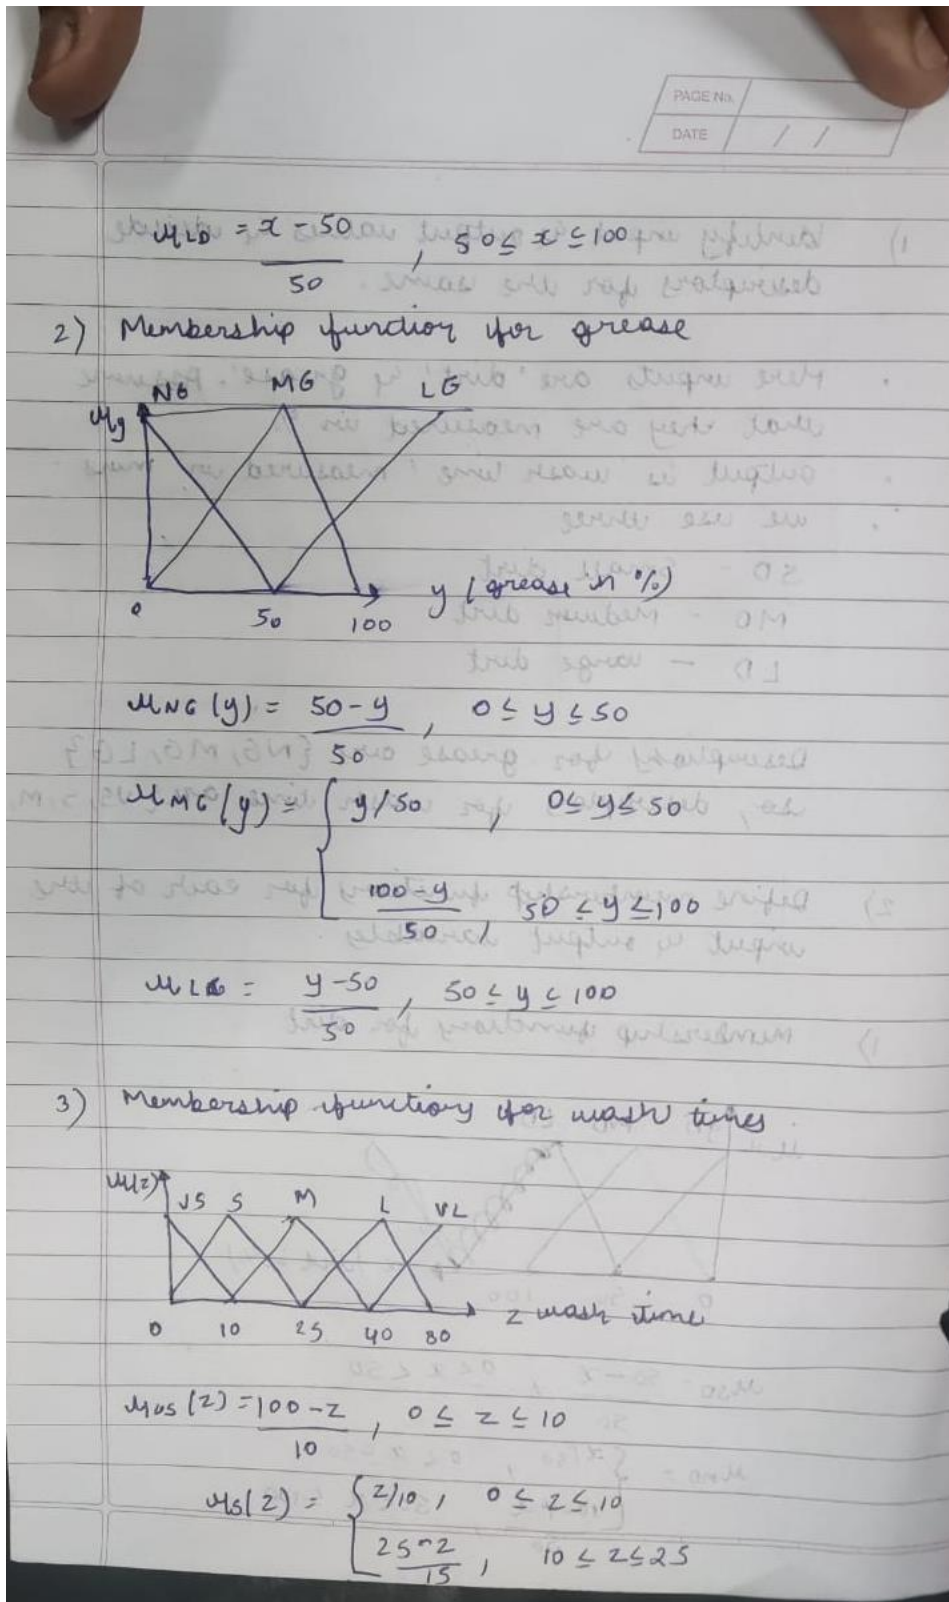 PAGE No.
DATE / /
μLD = x - 50 / 50 , 50 ≤ x ≤ 100
2) Membership function for grease
NG MG LG
μy
0 50 100 y (grease in %)
μNG (y) = 50 - y / 50 , 0 ≤ y ≤ 50
μMG (y) = { y/50 , 0 ≤ y ≤ 50
100 - y / 50 , 50 ≤ y ≤ 100
μLG = y - 50 / 50 , 50 ≤ y ≤ 100
3) Membership functions for wash times
μ(z) VS S M L VL
0 10 25 40 80 z wash time
μvs (z) = 100 - z / 10 , 0 ≤ z ≤ 10
μs(z) = { z/10 , 0 ≤ z ≤ 10
25 - z / 15 , 10 ≤ z ≤ 25